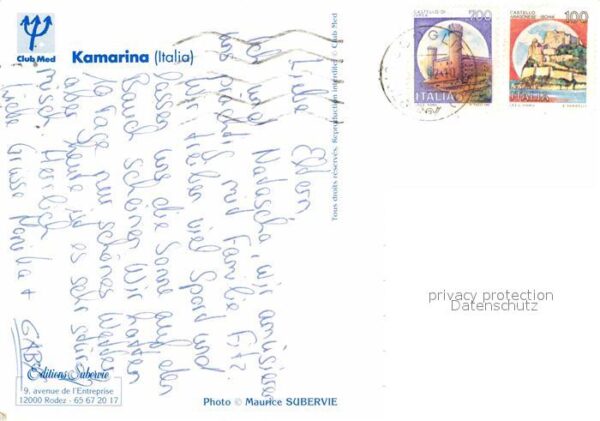 Club Med
Kamarina (Italia)
Liebe Eltern
Ich und Natascha, wir amüsieren
uns prächtig mit Familie Fitz.
Wir treiben viel Sport und
lassen uns die Sonne auf den
Bauch scheinen. Wir hatten
Tage nur schönes Wetter
aber heute ist es sehr stürmisch
Herzlich
liebe Grüsse Monika +
GABI
Tous droits réservés. Reproduction interdite. © Club Med
CASTELLO DI
700
ITALIA
CASTELLO
ARAGONESE
100
ITALIA
privacy protection
Datenschutz
Editions Subervie
9, avenue de l'Entreprise
12000 Rodez - 65 67 20 17
Photo © Maurice SUBERVIE